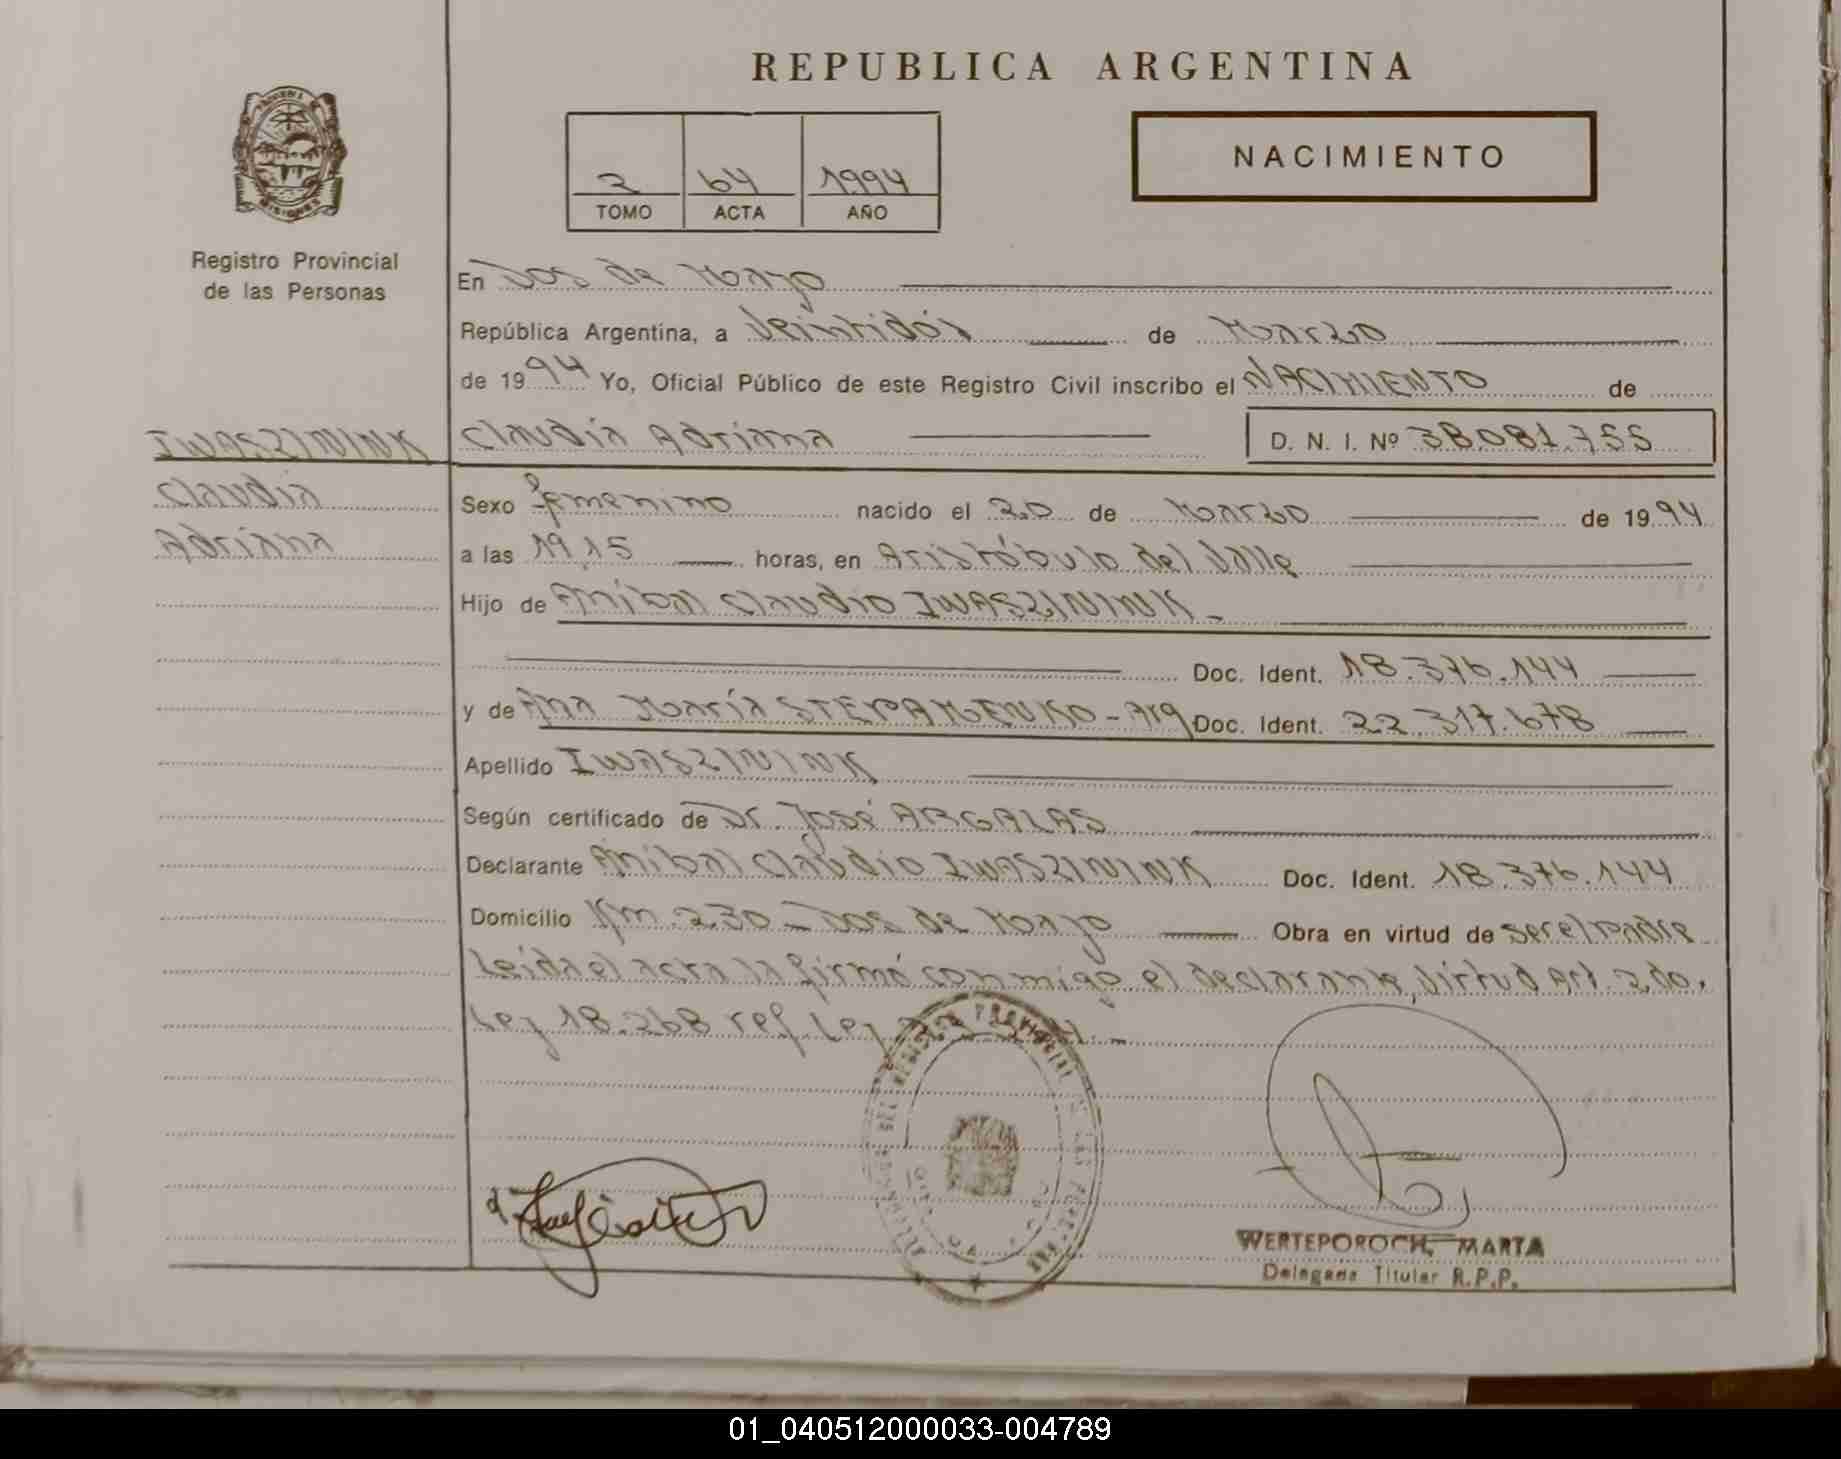 REPUBLICA ARGENTINA
NACIMIENTO
2 64 1994
TOMO ACTA AÑO
MISIONES
Registro Provincial
de las Personas
En Dos de Mayo
República Argentina, a Veintidós de Marzo
de 1994 Yo, Oficial Público de este Registro Civil inscribo el NACIMIENTO de
Claudia Adriana D. N. I. Nº 38.081.755
IWASZININK
Claudia
Adriana
Sexo femenino nacido el 20 de Marzo de 1994
a las 19,15 horas, en Aristóbulo del Valle
Hijo de Aníbal Claudio IWASZININK.
Doc. Ident. 18.376.144
y de Ana María - Arg Doc. Ident. 22.317.678
Apellido IWASZININK
Según certificado de Dr. José ARGALAS
Declarante Aníbal Claudio IWASZININK Doc. Ident. 18.376.144
Domicilio Km. 230 - Dos de Mayo Obra en virtud de ser el padre
Leída el acta la firmó conmigo el declarante, Virtud Art. 2do.
Ley 18.268 ref. Ley
WERTEPOROCH, MARTA
Delegada Titular R.P.P.
01_040512000033-004789